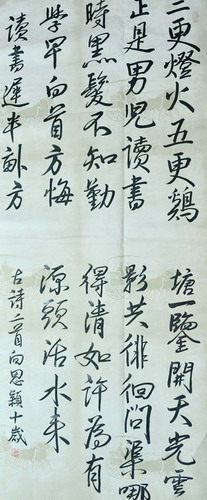 三更燈火五更鷄
正是男兒讀書
時黑髮不知勤
學早白首方悔
讀書遲半畝方
塘一鑒開天光雲
影共徘徊問渠哪
得清如許為有
源頭活水來
古詩二首向思穎十歲